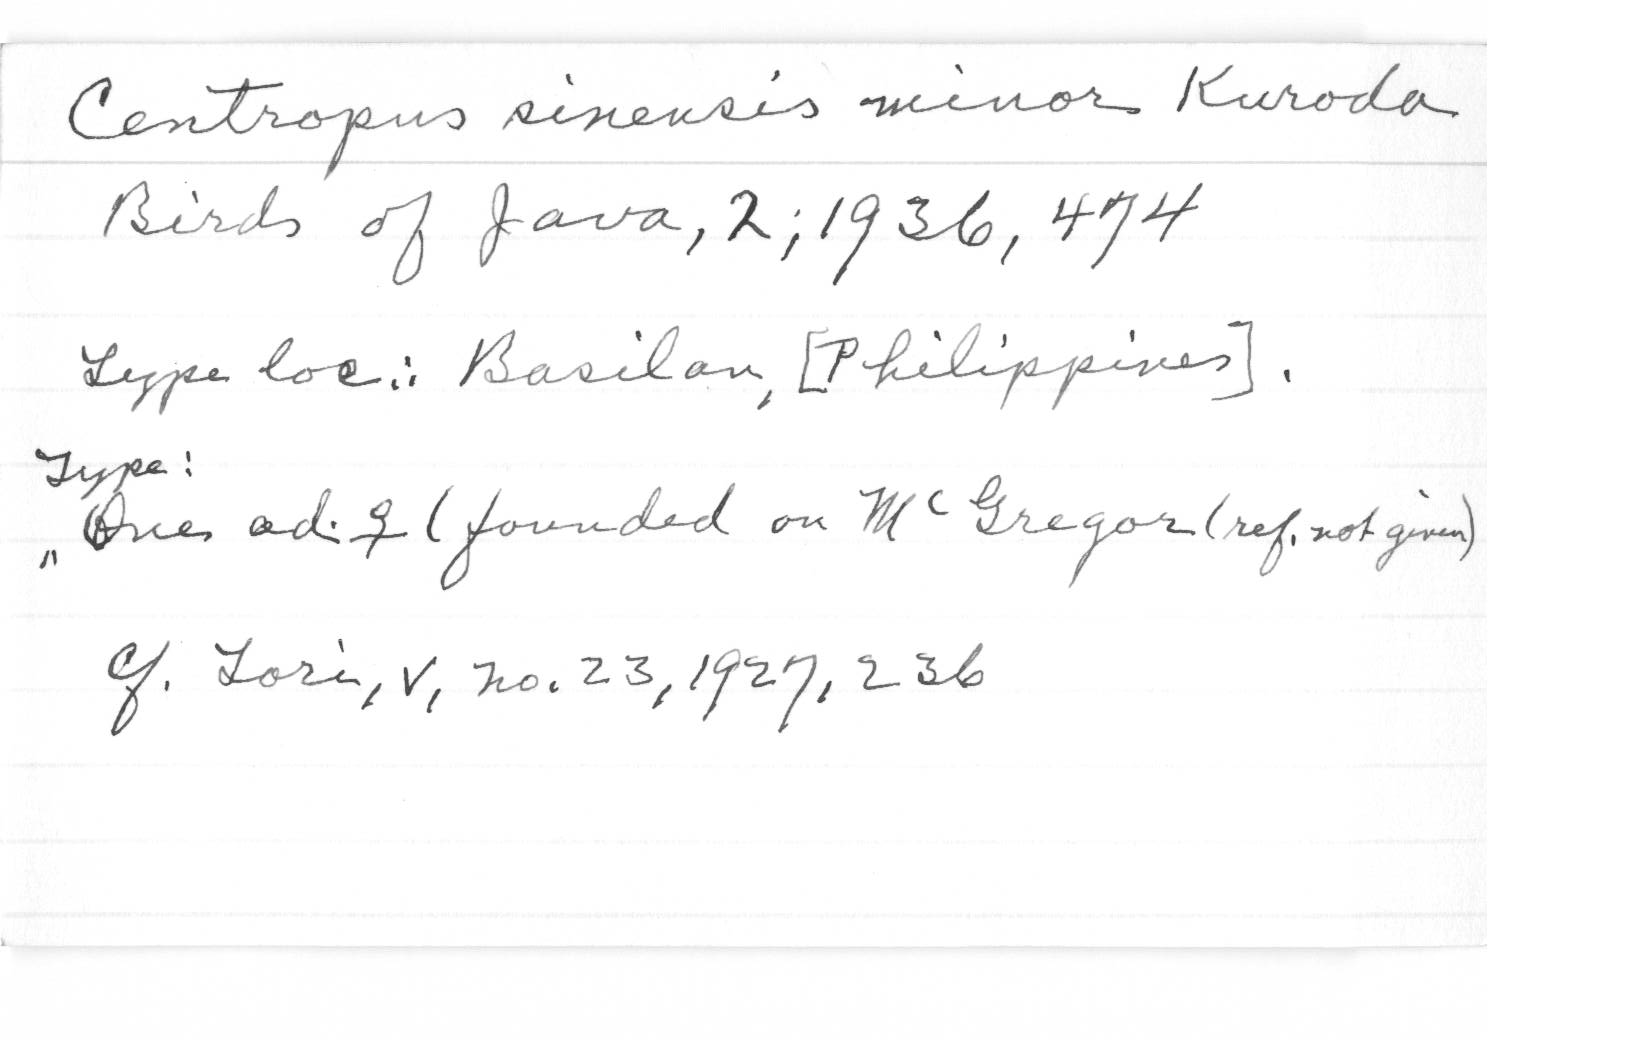 Centropus sinensis minor Kuroda
Birds of Java, 2; 1936, 474
Type loc.: Basilan, [Philippines].
Type:
„One ad. ♀ (founded on McGregor (ref. not given)
Cf. Tori, V, no. 23, 1927, 236